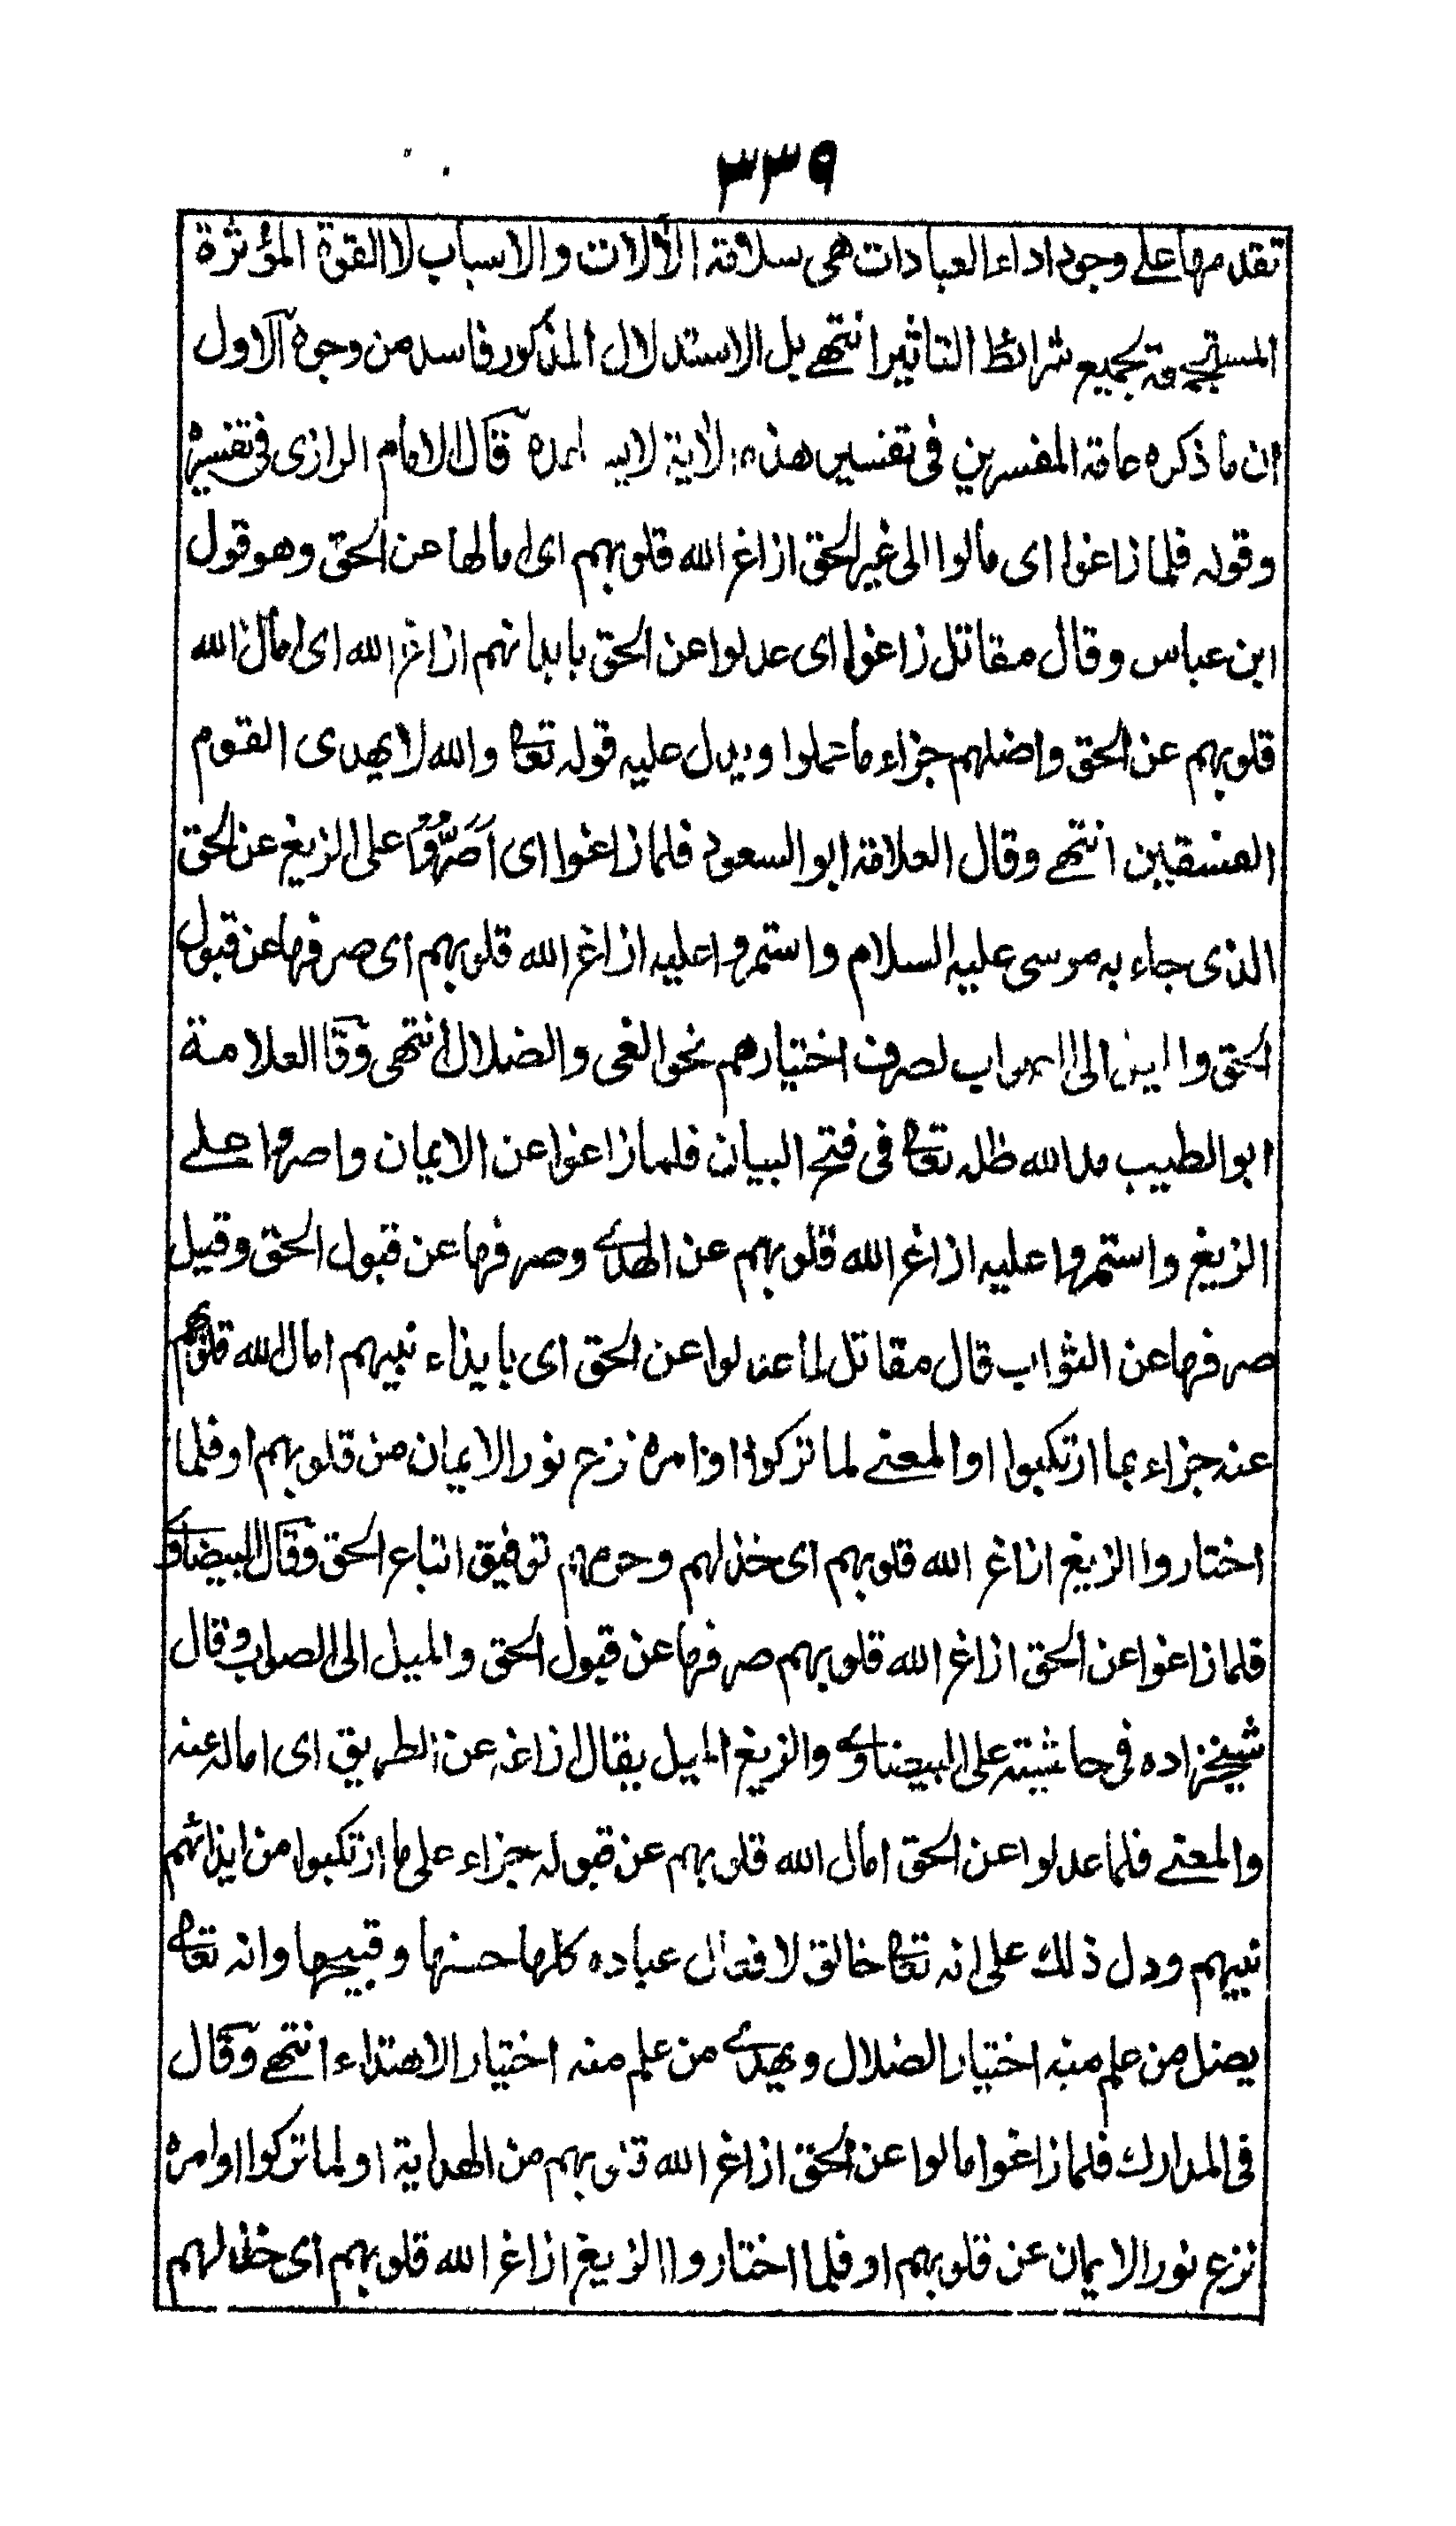 ٣٣٩
تقدمها على وجود اداء العبادات هى سلامة الألات والاسباب لا القوة المؤثرة
المستجمعة بجميع شرائط التاثير انتهے بل الاستدلال المذكور فاسد من وجوه الاول
ان ما ذكره عامة المفسرين فى تفسير هذه الأية لا قال الامام الرازى فى تفسيره
وقوله فلما زاغوا اى مالوا الى غير الحق ازاغ الله قلوبهم اى امالها عن الحق وهو قول
ابن عباس وقال مقاتل زاغوا اى عدلوا عن الحق بابدانهم ازاغ الله اى امال الله
قلوبهم عن الحق واضلهم جزاء ما عملوا ويدل عليه قوله تعالى والله لا يهدى القوم
الفسقين انتهے وقال العلامة ابو السعود فلما زاغوا اى اَصَرُّوْا على الزيغ عن الحق
الذى جاء به موسى عليه السلام واستمروا عليه ازاغ الله قلوبهم اى صرفها عن قبول
الحق والميل الى الصواب لصرف اختيارهم نحو الغى والضلال انتهى وقال العلامة
ابو الطيب مد الله ظله تعالى فى فتح البيان فلما زاغوا عن الايمان واصروا علے
الزيغ واستمروا عليه ازاغ الله قلوبهم عن الهدے وصرفها عن قبول الحق وقيل
صرفها عن الثواب قال مقاتل لما عدلوا عن الحق اى بايذاء نبيهم امال الله قلوبهم
عنه جزاء بما ارتكبوا او المعنے لما تركوا اوامره نزع نور الايمان من قلوبهم او فلما
اختاروا الزيغ ازاغ الله قلوبهم اى خذلهم وحرمهم توفيق اتباع الحق وقال البيضاوے
فلما زاغوا عن الحق ازاغ الله قلوبهم صرفها عن قبول الحق والميل الى الصواب وقال
شيخزاده فى حاشيته على البيضاوے والزيغ الميل يقال ازاغه عن الطريق اى اماله عنه
والمعنے فلما عدلوا عن الحق امال الله قلوبهم عن قبوله جزاء على ما ارتكبوا من ايذائهم
نبيهم ودل ذلك على انه تعالى خالق لافعال عباده كلها حسنها وقبيحها وانه تعالى
يضل من علم منه اختيار الضلال ويهدے من علم منه اختيار الاهتداء انتهے وقال
فى المدارك فلما زاغوا مالوا عن الحق ازاغ الله قلوبهم من الهداية او لما تركوا اوامره
نزع نور الايمان عن قلوبهم او فلما اختاروا الزيغ ازاغ الله قلوبهم اى خذلهم